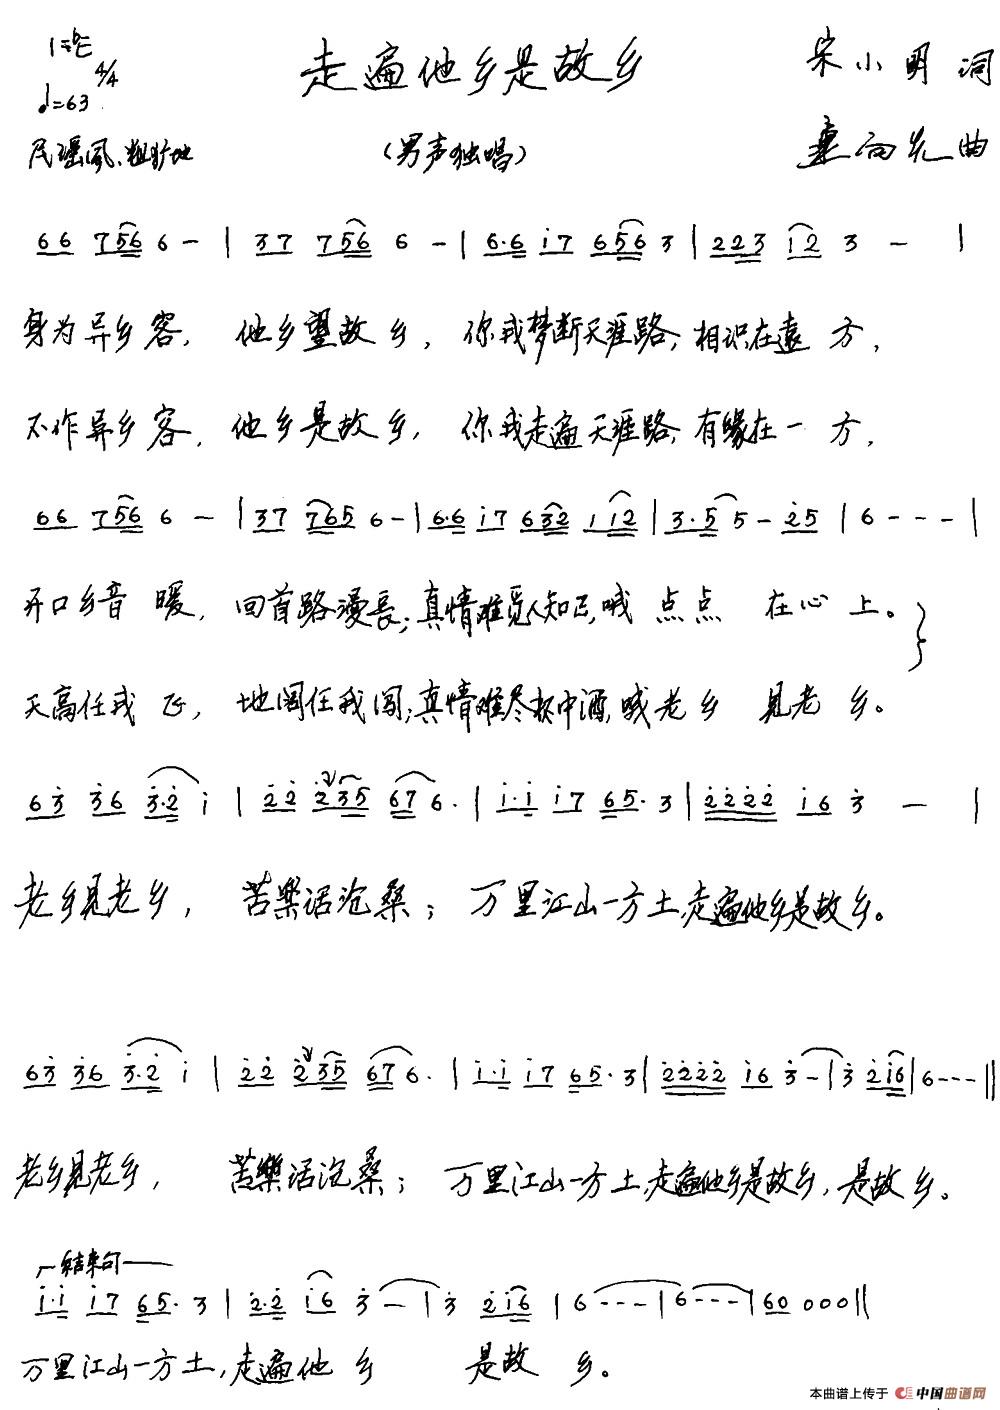 1=bE 4/4
♩=63
走遍他乡是故乡
宋小明 词
民瑶风、粗犷地
(男声独唱)
曲
66 756 6 - | 37 756 6 - | 6·6 i7 656 3 | 223 i2 3 - |
身为异乡客, 他乡望故乡, 你我梦断天涯路; 相识在遠方,
不作异乡客, 他乡是故乡, 你我走遍天涯路, 有缘在一方,
66 756 6 - | 37 765 6 - | 6·6 i7 632 1i2 | 3·5 5 - 25 | 6 - - - |
开口乡音暖, 回首路漫長; 真情难觅人知己, 哦点点在心上。
天高任我飞, 地阔任我闯; 真情难尽杯中酒, 哦老乡見老乡。
63 36 3·2 i | 22 235 67 6· | i·i i7 65· 3 | 2222 i6 3 - |
老乡見老乡, 苦樂话沧桑; 万里江山一方土, 走遍他乡是故乡。
63 36 3·2 i | 22 235 67 6· | i·i i7 65· 3 | 2222 i6 3 - | 3 2i6 | 6 - - - ||
老乡見老乡, 苦樂话沧桑; 万里江山一方土, 走遍他乡是故乡, 是故乡。
结束句
i·i i7 65· 3 | 2·2 i6 3 - | 3 2i6 | 6 - - - | 6 - - - | 60 000 ||
万里江山一方土, 走遍他乡 是故乡。
本曲谱上传于 中国曲谱网